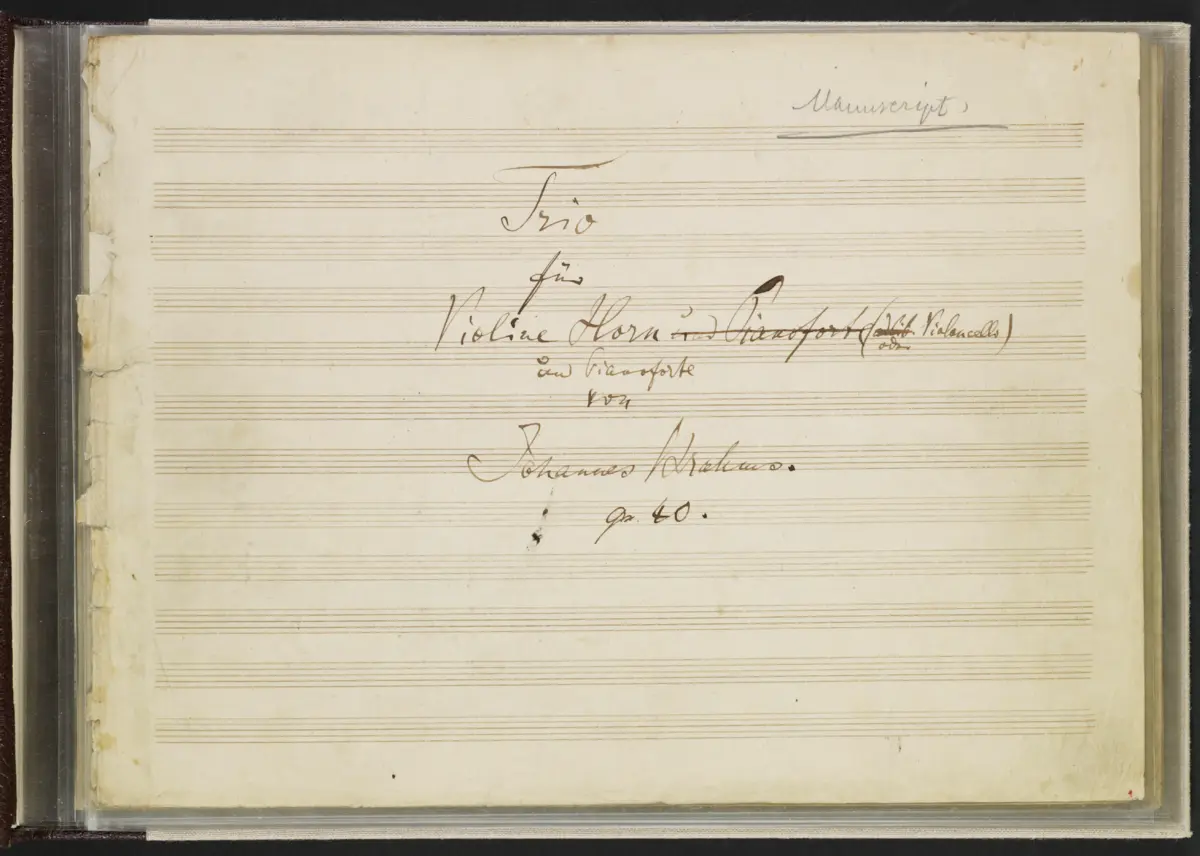 Manuscript
Trio
für
Violine Horn und Pianoforte (oder Violoncello)
und Pianoforte
von
Johannes Brahms.
op. 40.